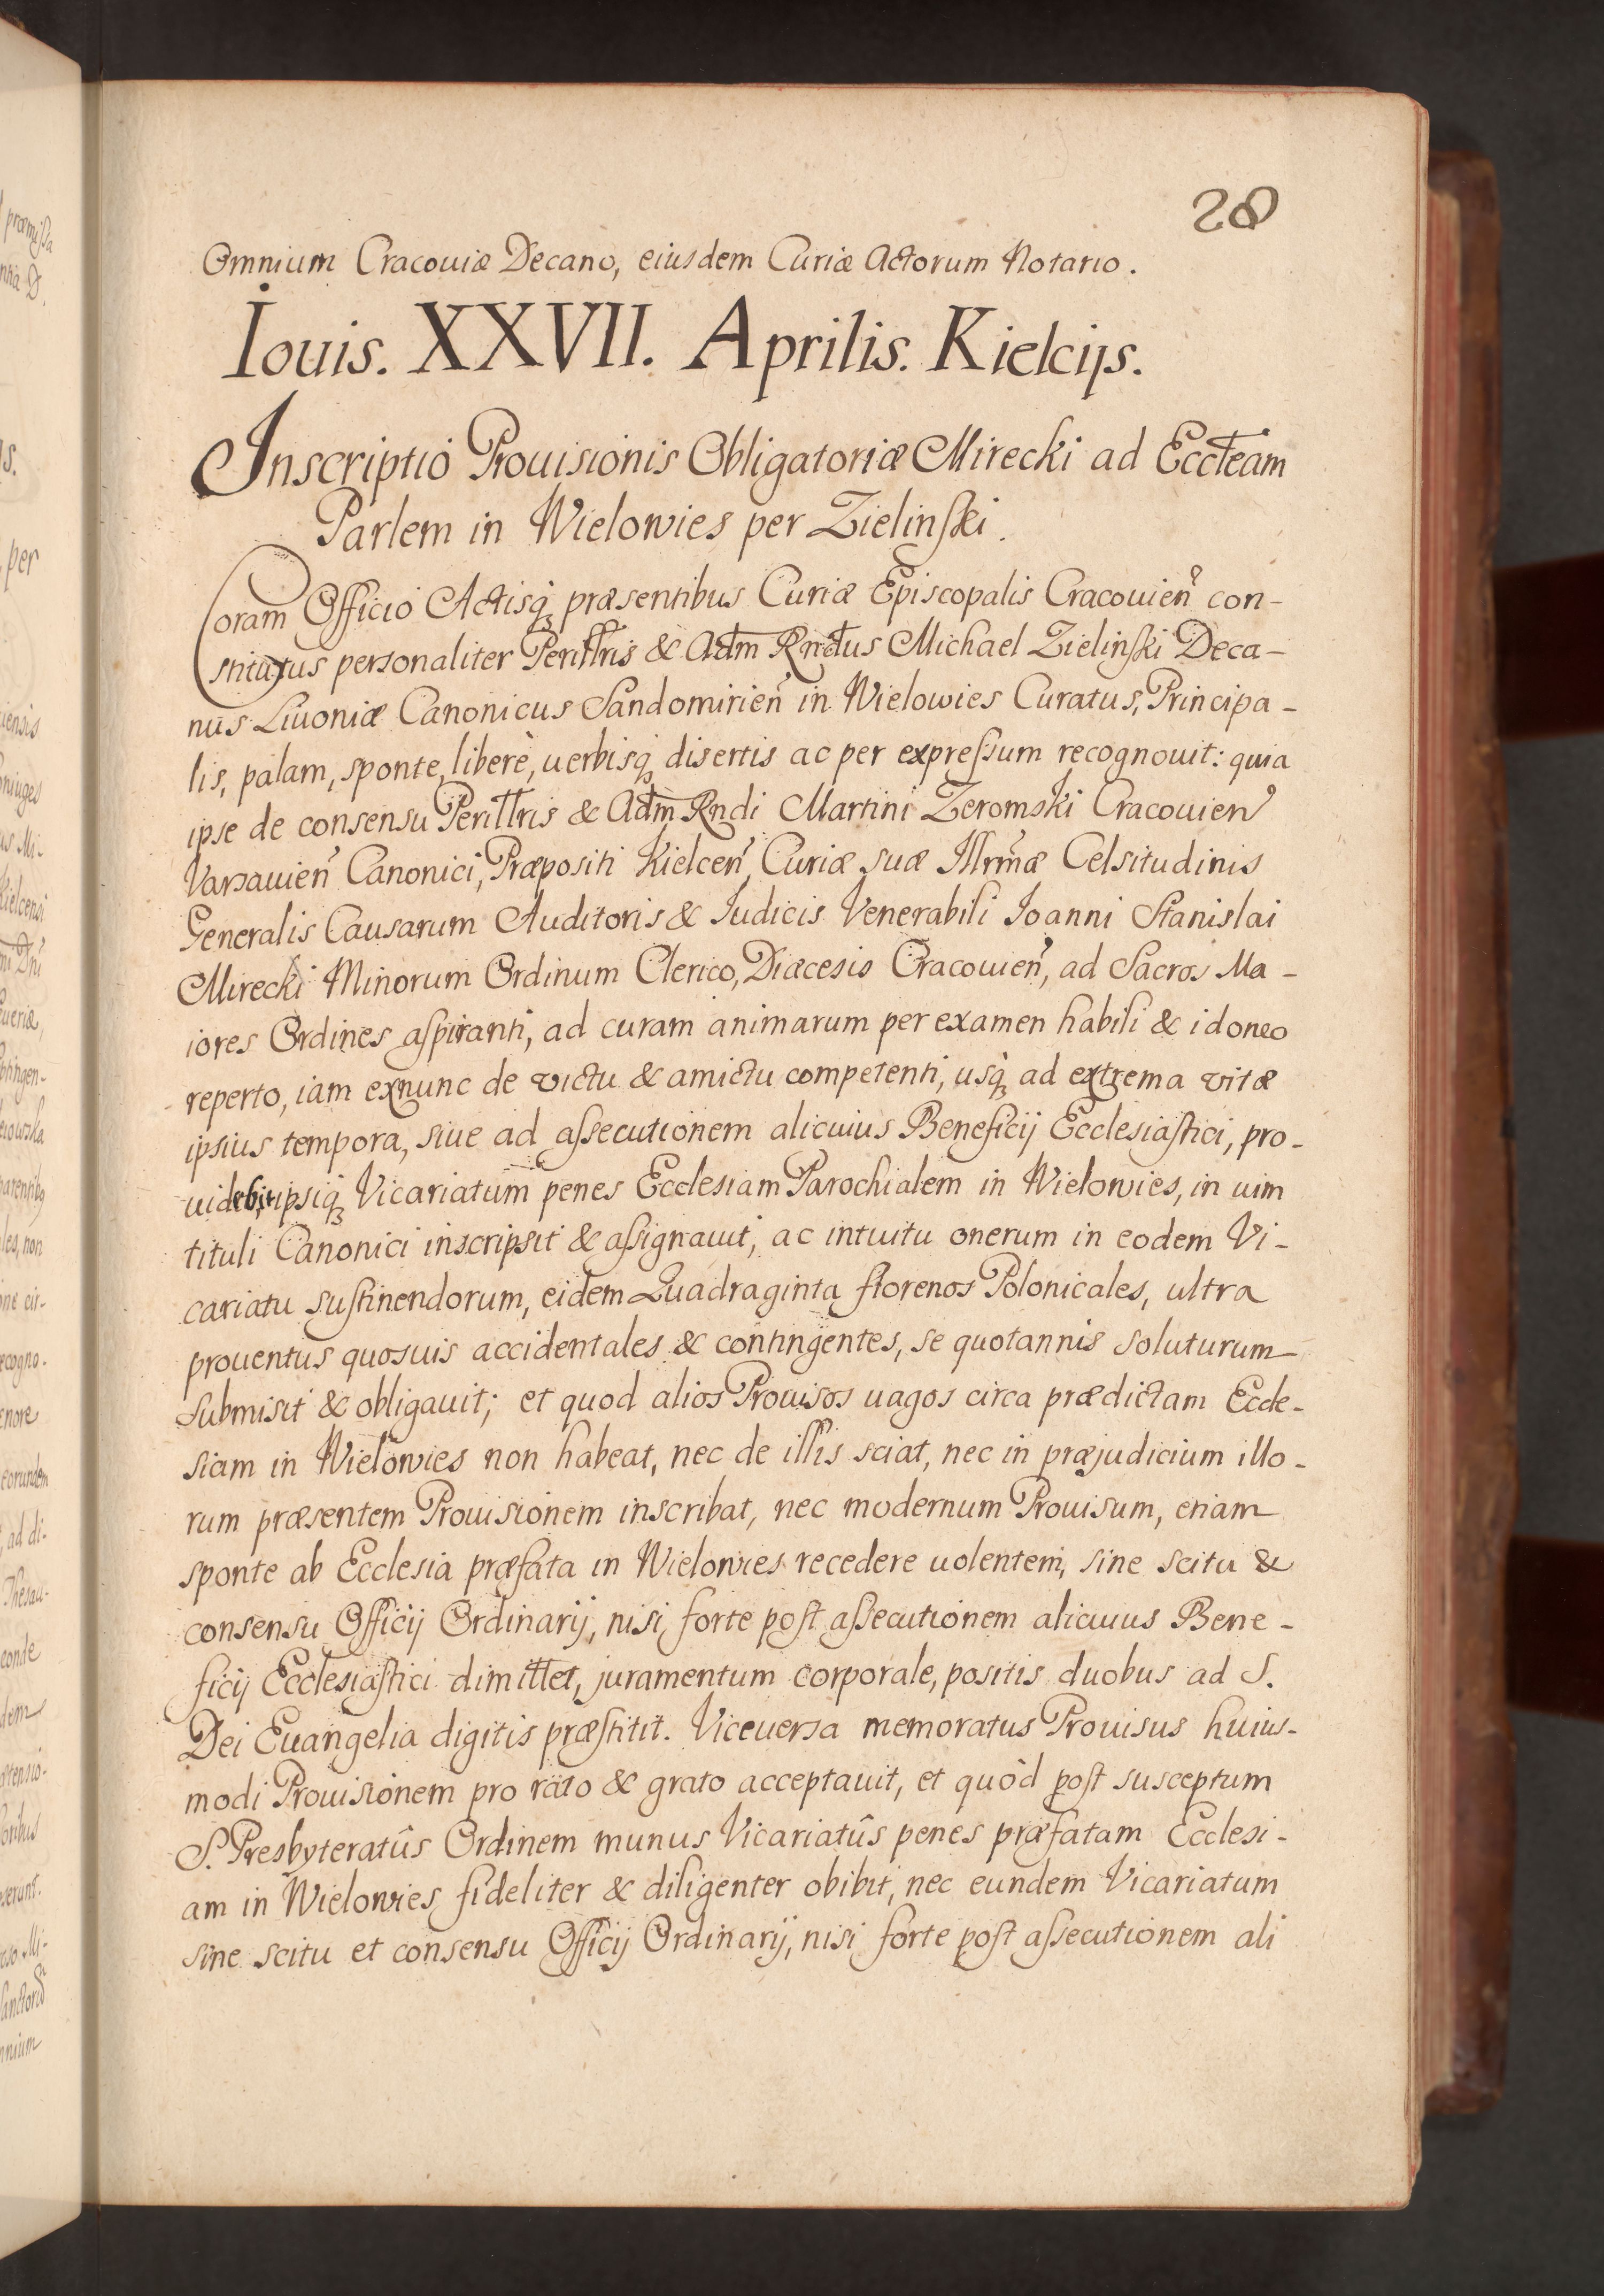 28
Omnium Cracouiæ Decano, eiusdem Curiæ Actorum Notario.
Iouis. XXVII. Aprilis. Kielcijs.
Inscriptio Prouisionis Obligatoriæ Mirecki ad Eccłeam
Parlem in Wielowies per Zielinski.
Coram Officio Actisq; præsentibus Curiæ Episcopalis Cracouień con-
stitutus personaliter Perillris & Adm Rndus Michael Zielinski Deca-
nus Liuoniæ Canonicus Sandomirień in Wielowies Curatus, Principa-
lis, palam, sponte, liberè, uerbisq; disertis ac per expressum recognouit: quia
ipse de consensu Perillris & Adm Rndi Martini Zeromski Cracouień
Varsauień Canonici, Præpositi Kielceń, Curiæ suæ Illrmæ Celsitudinis
Generalis Causarum Auditoris & Iudicis Venerabili Ioanni Stanislai
Mirecki Minorum Ordinum Clerico, Diæcesis Cracouień, ad Sacros Ma-
iores Ordines aspiranti, ad curam animarum per examen habili & idoneo
reperto, iam exnunc de victu & amictu competenti, usq; ad extrema vitæ
ipsius tempora, siue ad assecutionem alicuius Beneficij Ecclesiastici, pro-
uidebit, ipsiq; Vicariatum penes Ecclesiam Parochialem in Wielowies, in uim
tituli Canonici inscripsit & assignauit, ac intuitu onerum in eodem Vi-
cariatu sustinendorum, eidem Quadraginta florenos Polonicales, ultra
prouentus quosuis accidentales & contingentes, se quotannis soluturum
submisit & obligauit; et quod alios Prouisos uagos circa prædictam Eccle-
siam in Wielowies non habeat, nec de illis sciat, nec in præjudicium illo-
rum præsentem Prouisionem inscribat, nec modernum Prouisum, etiam
sponte ab Ecclesia præfata in Wielowies recedere uolentem, sine scitu &
consensu Officij Ordinarij, nisi forte post assecutionem alicuius Bene-
ficij Ecclesiastici dimittet, juramentum corporale, positis duobus ad S.
Dei Euangelia digitis præstitit. Viceuersa memoratus Prouisus huius-
modi Prouisionem pro rato & grato acceptauit, et quòd post susceptum
S. Presbyteratûs Ordinem munus Vicariatûs penes præfatam Ecclesi-
am in Wielowies fideliter & diligenter obibit, nec eundem Vicariatum
sine scitu et consensu Officij Ordinarij, nisi forte post assecutionem ali